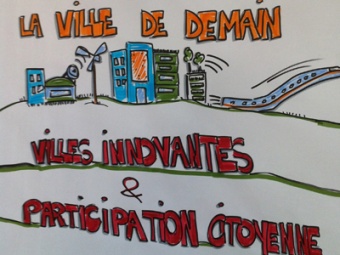 LA VILLE DE DEMAIN
VILLES INNOVANTES
&
PARTICIPATION CITOYENNE